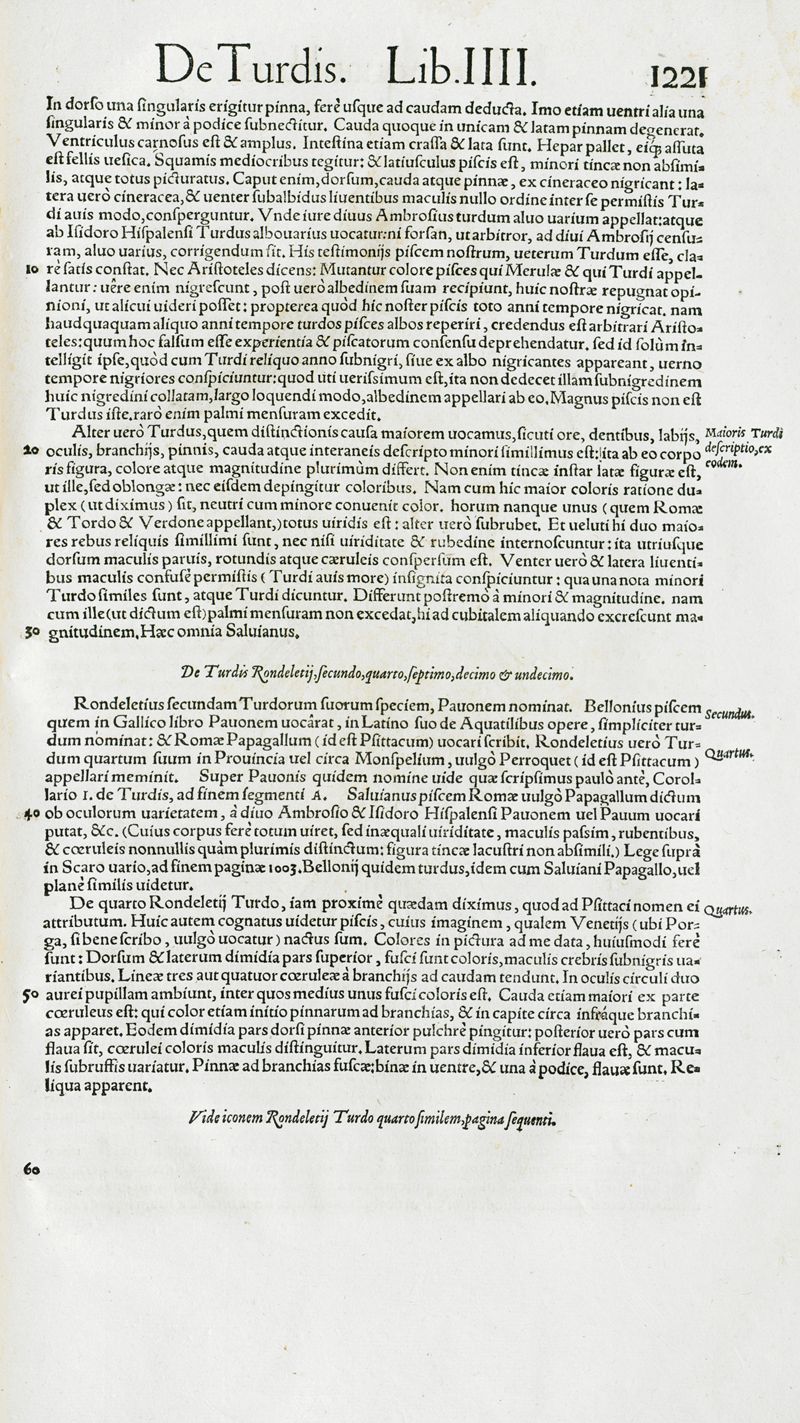 De Turdis. Lib. IIII. 1221
In dorso una singularis erigitur pinna, ferè usque ad caudam deducta. Imo etiam uentri alia una
singularis & minor à podice subnectitur. Cauda quoque in unicam & latam pinnam degenerat.
Ventriculus carnosus est & amplus. Intestina etiam crassa & lata sunt. Hepar pallet, eiq́; assuta
est fellis uesica. Squamis mediocribus tegitur: & latiusculus piscis est, minori tincæ non absimi-
lis, atque totus picturatus. Caput enim, dorsum, cauda atque pinnæ, ex cineraceo nigricant: la-
tera uerò cineracea, & uenter subalbidus liuentibus maculis nullo ordine inter se permistis Tur-
di auis modo, consperguntur. Vnde iure diuus Ambrosius turdum aluo uarium appellat: atque
ab Isidoro Hispalensi Turdus albouarius uocatur: ni forsan, ut arbitror, ad diui Ambrosij censu-
ram, aluo uarius, corrigendum sit. His testimonijs piscem nostrum, ueterum Turdum esse, cla-
10 rè satis constat. Nec Aristoteles dicens: Mutantur colore pisces qui Merulæ & qui Turdi appel-
lantur: uêre enim nigrescunt, post uerò albedinem suam recipiunt, huic nostræ repugnat opi-
nioni, ut alicui uideri posset: propterea quòd hic noster piscis toto anni tempore nigricat. nam
haudquaquam aliquo anni tempore turdos pisces albos reperiri, credendus est arbitrari Aristo-
teles: quum hoc falsum esse experientia & piscatorum consensu deprehendatur. sed id solùm in-
telligit ipse, quòd cum Turdi reliquo anno subnigri, siue ex albo nigricantes appareant, uerno
tempore nigriores conspiciuntur: quod uti uerissimum est, ita non dedecet illam subnigredinem
huic nigredini collatam, largo loquendi modo, albedinem appellari ab eo. Magnus piscis non est
Turdus iste. raro enim palmi mensuram excedit.
Alter uerò Turdus, quem distinctionis causa maiorem uocamus, sicuti ore, dentibus, labijs,
Maioris Turdi
descriptio, ex
eodem.
20 oculis, branchijs, pinnis, cauda atque interaneis descripto minori simillimus est: ita ab eo corpo
ris figura, colore atque magnitudine plurimùm differt. Non enim tincæ instar latæ figuræ est,
ut ille, sed oblongæ: nec eisdem depingitur coloribus. Nam cum hic maior coloris ratione du-
plex (ut diximus) sit, neutri cum minore conuenit color. horum nanque unus (quem Romæ
& Tordo & Verdone appellant,) totus uiridis est: alter uerò subrubet. Et ueluti hi duo maio-
res rebus reliquis simillimi sunt, nec nisi uiriditate & rubedine internoscuntur: ita utriusque
dorsum maculis paruis, rotundis atque cæruleis conspersum est. Venter uerò & latera liuenti-
bus maculis confusè permistis (Turdi auis more) insignita conspiciuntur: qua una nota minori
Turdo similes sunt, atque Turdi dicuntur. Differunt postremò à minori & magnitudine. nam
cum ille (ut dictum est) palmi mensuram non excedat, hi ad cubitalem aliquando excrescunt ma-
30 gnitudinem. Hæc omnia Saluianus.
De Turdis Rondeletij, secundo, quarto, septimo, decimo & undecimo.
Rondeletius secundam Turdorum suorum speciem, Pauonem nominat. Bellonius piscem
Secundus.
quem in Gallico libro Pauonem uocârat, in Latino suo de Aquatilibus opere, simpliciter tur-
dum nominat: & Romæ Papagallum (id est Psittacum) uocari scribit. Rondeletius uerò Tur-
dum quartum suum in Prouincia uel circa Monspelium, uulgò Perroquet (id est Psittacum)
Quartus.
appellari meminit. Super Pauonis quidem nomine uide quæ scripsimus paulò antè, Corol-
lario 1. de Turdis, ad finem segmenti A. Saluianus piscem Romæ uulgò Papagallum dictum
40 ob oculorum uarietatem, à diuo Ambrosio & Isidoro Hispalensi Pauonem uel Pauum uocari
putat, &c. (Cuius corpus ferè totum uiret, sed inæquali uiriditate, maculis passim, rubentibus,
& cœruleis nonnullis quàm plurimis distinctum: figura tincæ lacustri non absimili.) Lege suprà
in Scaro uario, ad finem paginæ 1003. Bellonij quidem turdus, idem cum Saluiani Papagallo, uel
planè similis uidetur.
De quarto Rondeletij Turdo, iam proximè quædam diximus, quod ad Psittaci nomen ei
Quartus.
attributum. Huic autem cognatus uidetur piscis, cuius imaginem, qualem Venetijs (ubi Por-
ga, si bene scribo, uulgò uocatur) nactus sum. Colores in pictura ad me data, huiusmodi ferè
sunt: Dorsum & laterum dimidia pars superior, fusci sunt coloris, maculis crebris subnigris ua-
riantibus. Lineæ tres aut quatuor cœruleæ à branchijs ad caudam tendunt. In oculis circuli duo
50 aurei pupillam ambiunt, inter quos medius unus fusci coloris est. Cauda etiam maiori ex parte
cœruleus est: qui color etiam initio pinnarum ad branchias, & in capite circa infráque branchi-
as apparet. Eodem dimidia pars dorsi pinnæ anterior pulchrè pingitur: posterior uerò pars cum
flaua sit, cœrulei coloris maculis distinguitur. Laterum pars dimidia inferior flaua est, & macu-
lis subruffis uariatur. Pinnæ ad branchias fuscæ: binæ in uentre, & una à podice, flauæ sunt. Re-
liqua apparent.
Vide iconem Rondeletij Turdo quarto similem, pagina sequenti.
60